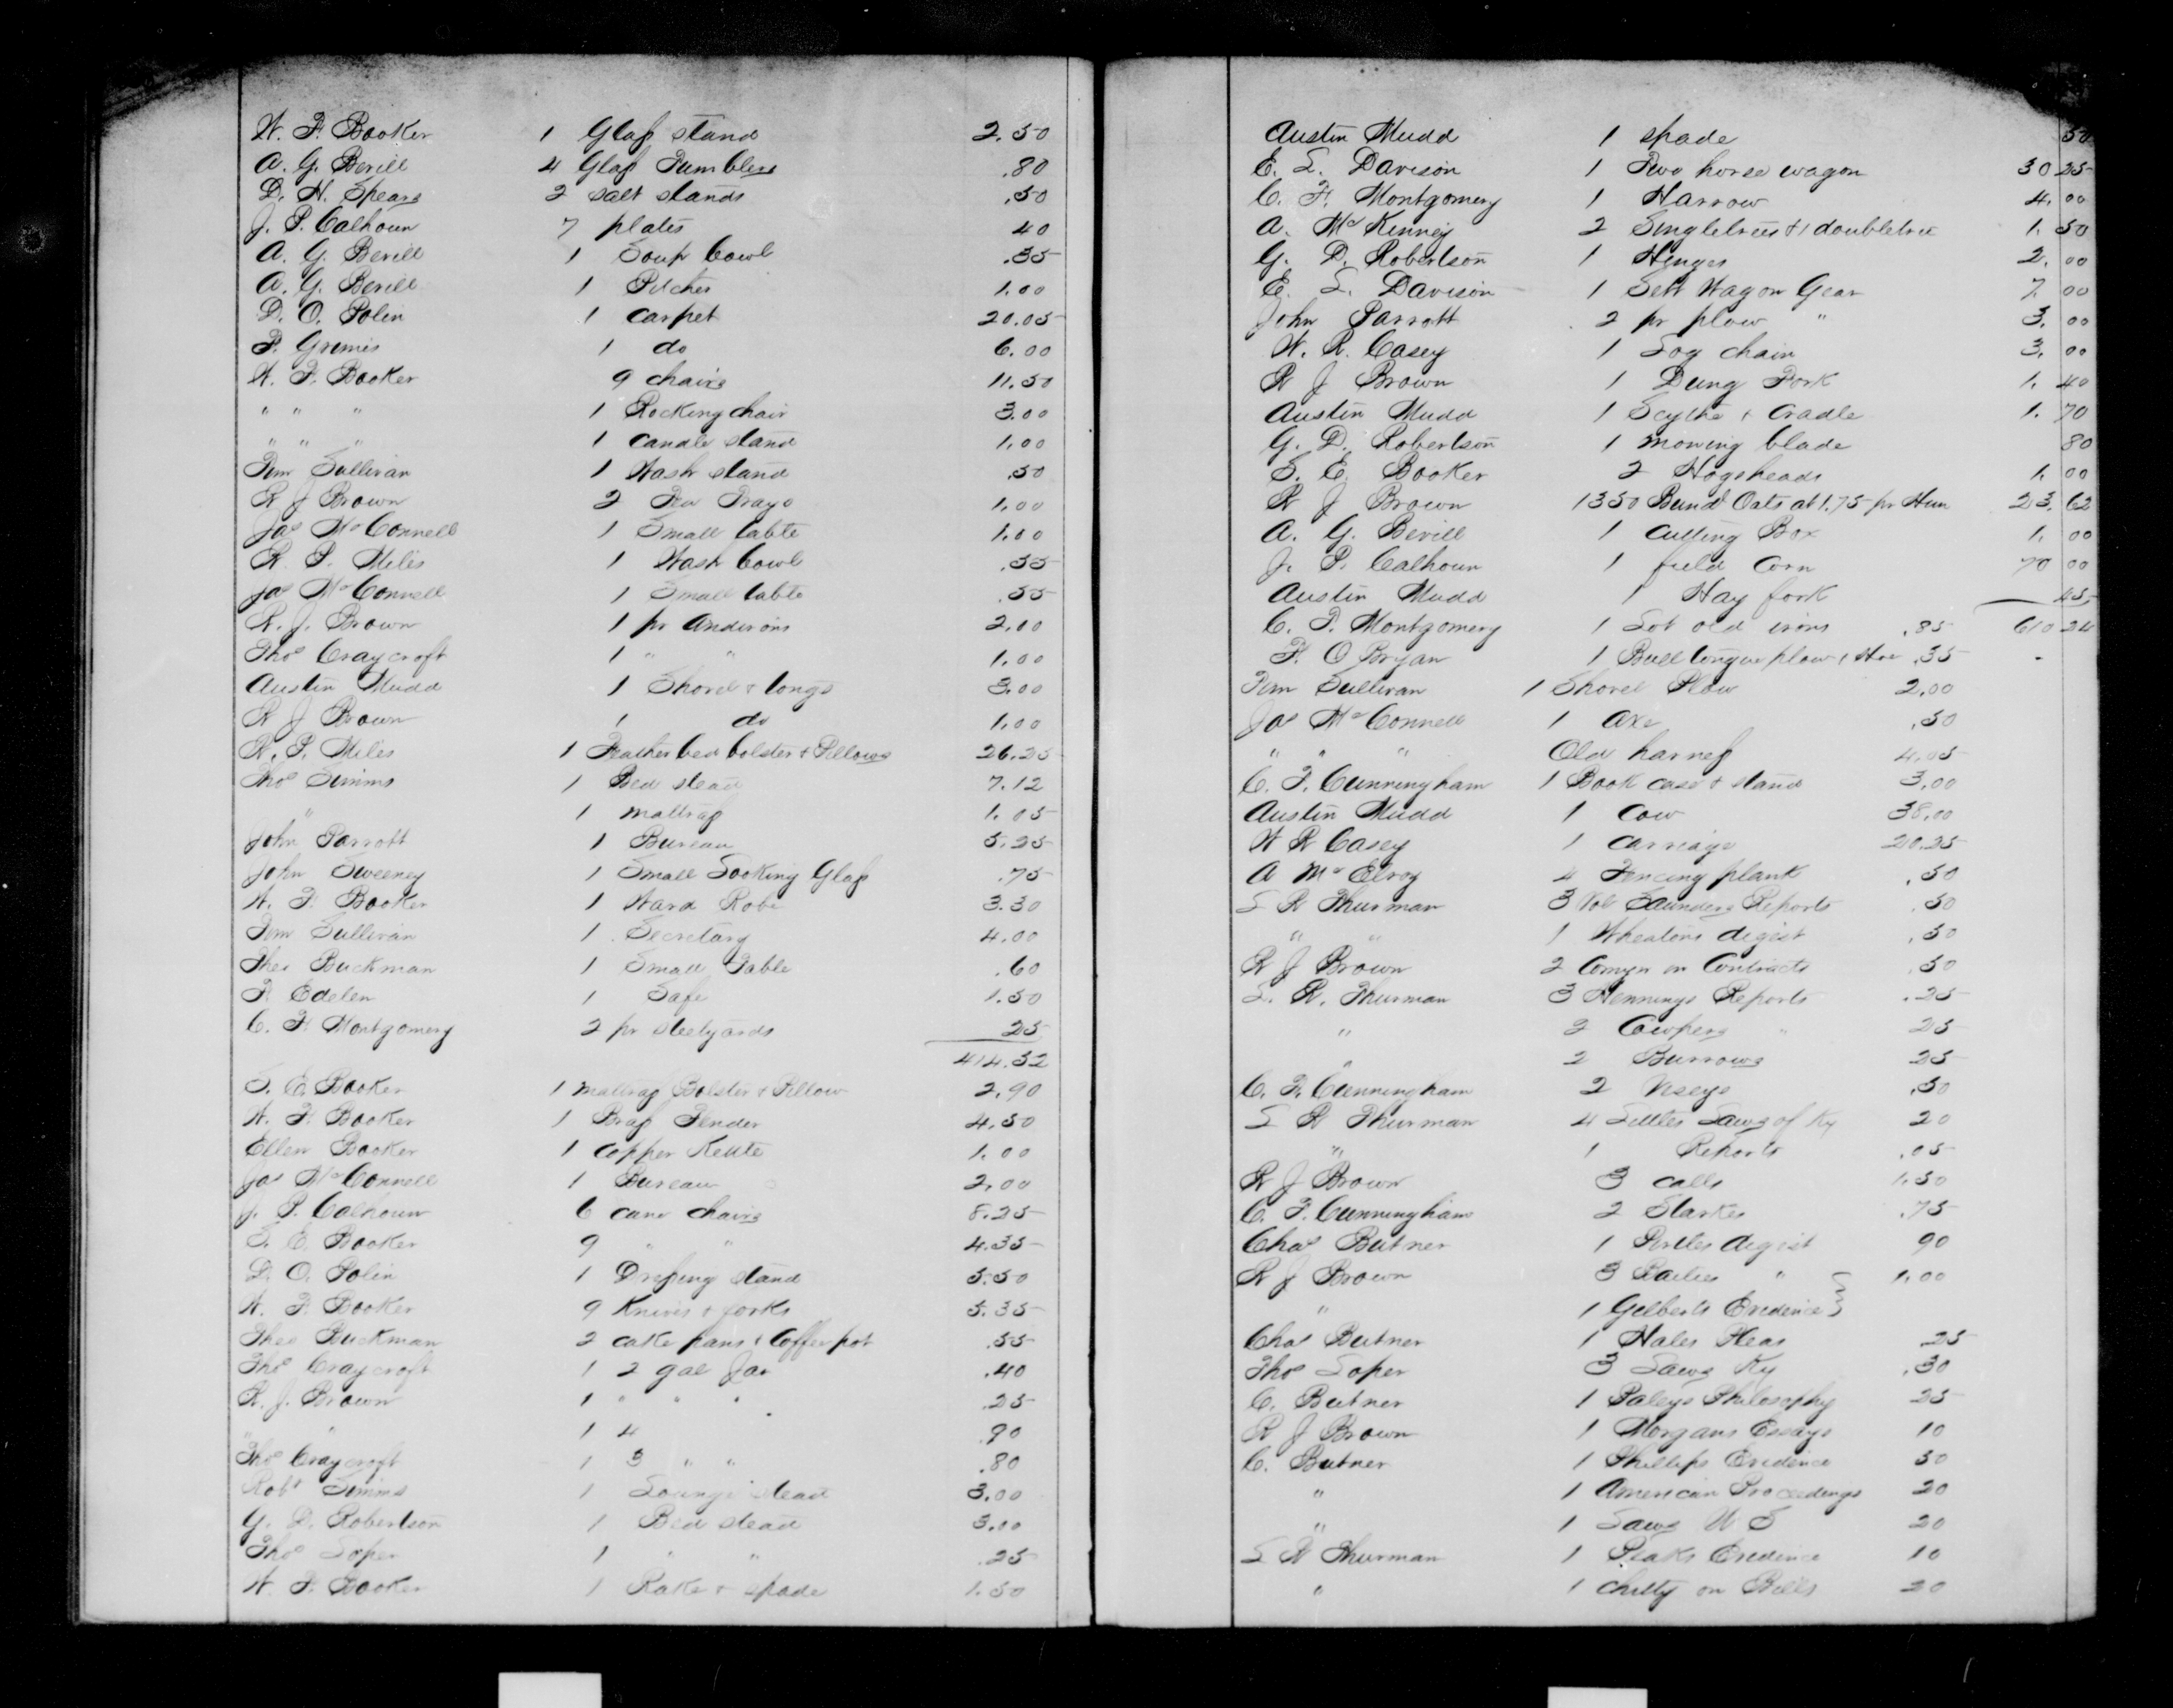 W. F. Booker 1 Glass stand 2.50
A. G. Bevill 4 Glass Tumblers .80
D. H. Spears 2 salt stands .50
J. P. Calhoun 7 plates 40
A. G. Bevill 1 Soup bowl .35
A. G. Bevill 1 Pitcher 1.00
D. O. Polin 1 carpet 20.05
P. Grimes 1 do 6.00
W. F. Booker 9 chairs 11.50
" " " 1 Rocking chair 3.00
" " " 1 candle stand 1.00
Tim Sullivan 1 Wash stand .50
R J Brown 2 Tea Trays 1.00
Jas McConnell 1 Small table 1.00
R. P. Miles 1 Wash bowl .55
Jas McConnell 1 Small table .55
R. J. Brown 1 pr Andirons 2.00
Thos Craycroft 1 " " 1.00
Austin Mudd 1 Shovel & tongs 3.00
R J Brown 1 do 1.00
R. P. Miles 1 Feather bed bolster & Pillows 26.25
Thos Simms 1 Bed stead 7.12
" 1 mattrass 1.05
John Parrott 1 Bureau 5.25
John Sweeney 1 Small Looking Glass .75
W. F. Booker 1 Ward Robe 3.30
Tim Sullivan 1 Secretary 4.00
Theo Buckman 1 Small Table .60
F Edelen 1 Safe 1.50
C. F. Montgomery 2 pr steelyards 25
414.32
S. E. Booker 1 mattrass Bolster & Pillow 2.90
W. F. Booker 1 Brass Fender 4.50
Ellen Booker 1 copper Kettle 1.00
Jas McConnell 1 Bureau 2.00
J. P. Calhoun 6 cane chairs 8.25
S. E. Booker 9 " " 4.35
D. O. Polin 1 Dressing stand 5.50
W. F. Booker 9 Knives & forks 5.35
Theo Buckman 2 cake pans & Coffee pot .55
Thos Craycroft 1 2 gal Jar .40
R. J. Brown 1 " " " .25
" " 1 4 .90
Thos Craycroft 1 3 " " .80
Robt Simms 1 Lounge stead 3.00
G. D. Robertson 1 Bed stead 3.00
Thos Soper 1 " " .25
W. F. Booker 1 Rake & spade 1.50
Austin Mudd 1 spade 50
E. L. Davison 1 Two horse wagon 30 25
C. F. Montgomery 1 Harrow 4.00
A. McKenney 2 Singletrees & 1 doubletree 1.50
G. D. Robertson 1 Hinges 2.00
E. L. Davison 1 Sett Wagon Gear 7.00
John Parrott 2 pr plow " 3.00
W. R. Casey 1 Log chain 3.00
R J Brown 1 Dung Fork 1.40
Austin Mudd 1 Scythe & Cradle 1.70
G. D. Robertson 1 mowing blade 80
S. E. Booker 2 Hogsheads 1.00
R J Brown 1350 Bund Oats at 1.75 pr Hun 23.62
A. G. Bevill 1 cutting Box 1.00
J. P. Calhoun 1 field Corn 70 00
Austin Mudd 1 Hay fork 45
C. F. Montgomery 1 Lot old irons .85 610 24
F. O Bryan 1 Bull tongue plow & Hoe .35
Tim Sullivan 1 Shovel Plow 2.00
Jas McConnell 1 axe .50
" " " Old harness 4.05
C. F. Cunningham 1 Book case & stand 3.00
Austin Mudd 1 Cow 38.00
W R Casey 1 carriage 20.25
A McElroy 4 Fencing plank .50
S R Thurman 3 Vol Saunders Reports .50
" " 1 Wheatons digist .50
R J Brown 2 Comyn on Contracts .50
S. R. Thurman 3 Hennings Reports .25
" 2 Cowpers " 25
" 2 Burrows 25
C. F. Cunningham 2 Veseys .50
S R Thurman 4 Littles Laws of Ky 20
" 1 Reports .05
R J Brown 3 calls 1.50
C. F. Cunningham 2 Starkes .75
Chas Butner 1 Pirtles digist 90
R J Brown 3 " 1.00
" 1 Gilberts Evidence
Chas Butner 1 Hales Pleas 25
Thos Soper 3 Laws Ky .30
C. Butner 1 Paleys Philosophy 25
R J Brown 1 Morgans Essays 10
C. Butner 1 Phillips Evidence 50
" 1 American Proceedings 20
" 1 Laws U S 20
S R Thurman 1 Peaks Evidence 10
" 1 Chitty on Bills 20